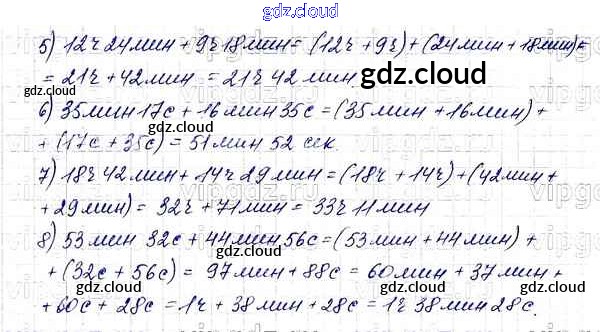 gdz.cloud
5) 12ч 24мин + 9ч 18мин = (12ч + 9ч) + (24мин + 18мин) =
= 21ч + 42мин = 21ч 42 мин
gdz.cloud
gdz.cloud
6) 35мин 17с + 16мин 35с = (35мин + 16мин) +
gdz.cloud
+ (17с + 35с) = 51мин 52 сек.
gdz.cloud
7) 18ч 42мин + 14ч 29мин = (18ч + 14ч) + (42мин +
+ 29мин) = 32ч + 71мин = 33ч 11мин
gdz.cloud
8) 53мин 32с + 44мин 56с = (53мин + 44мин) +
+ (32с + 56с) = 97мин + 88с = 60мин + 37мин +
+ 60с + 28с = 1ч + 38мин + 28с = 1ч 38мин 28с.
gdz.cloud
gdz.cloud